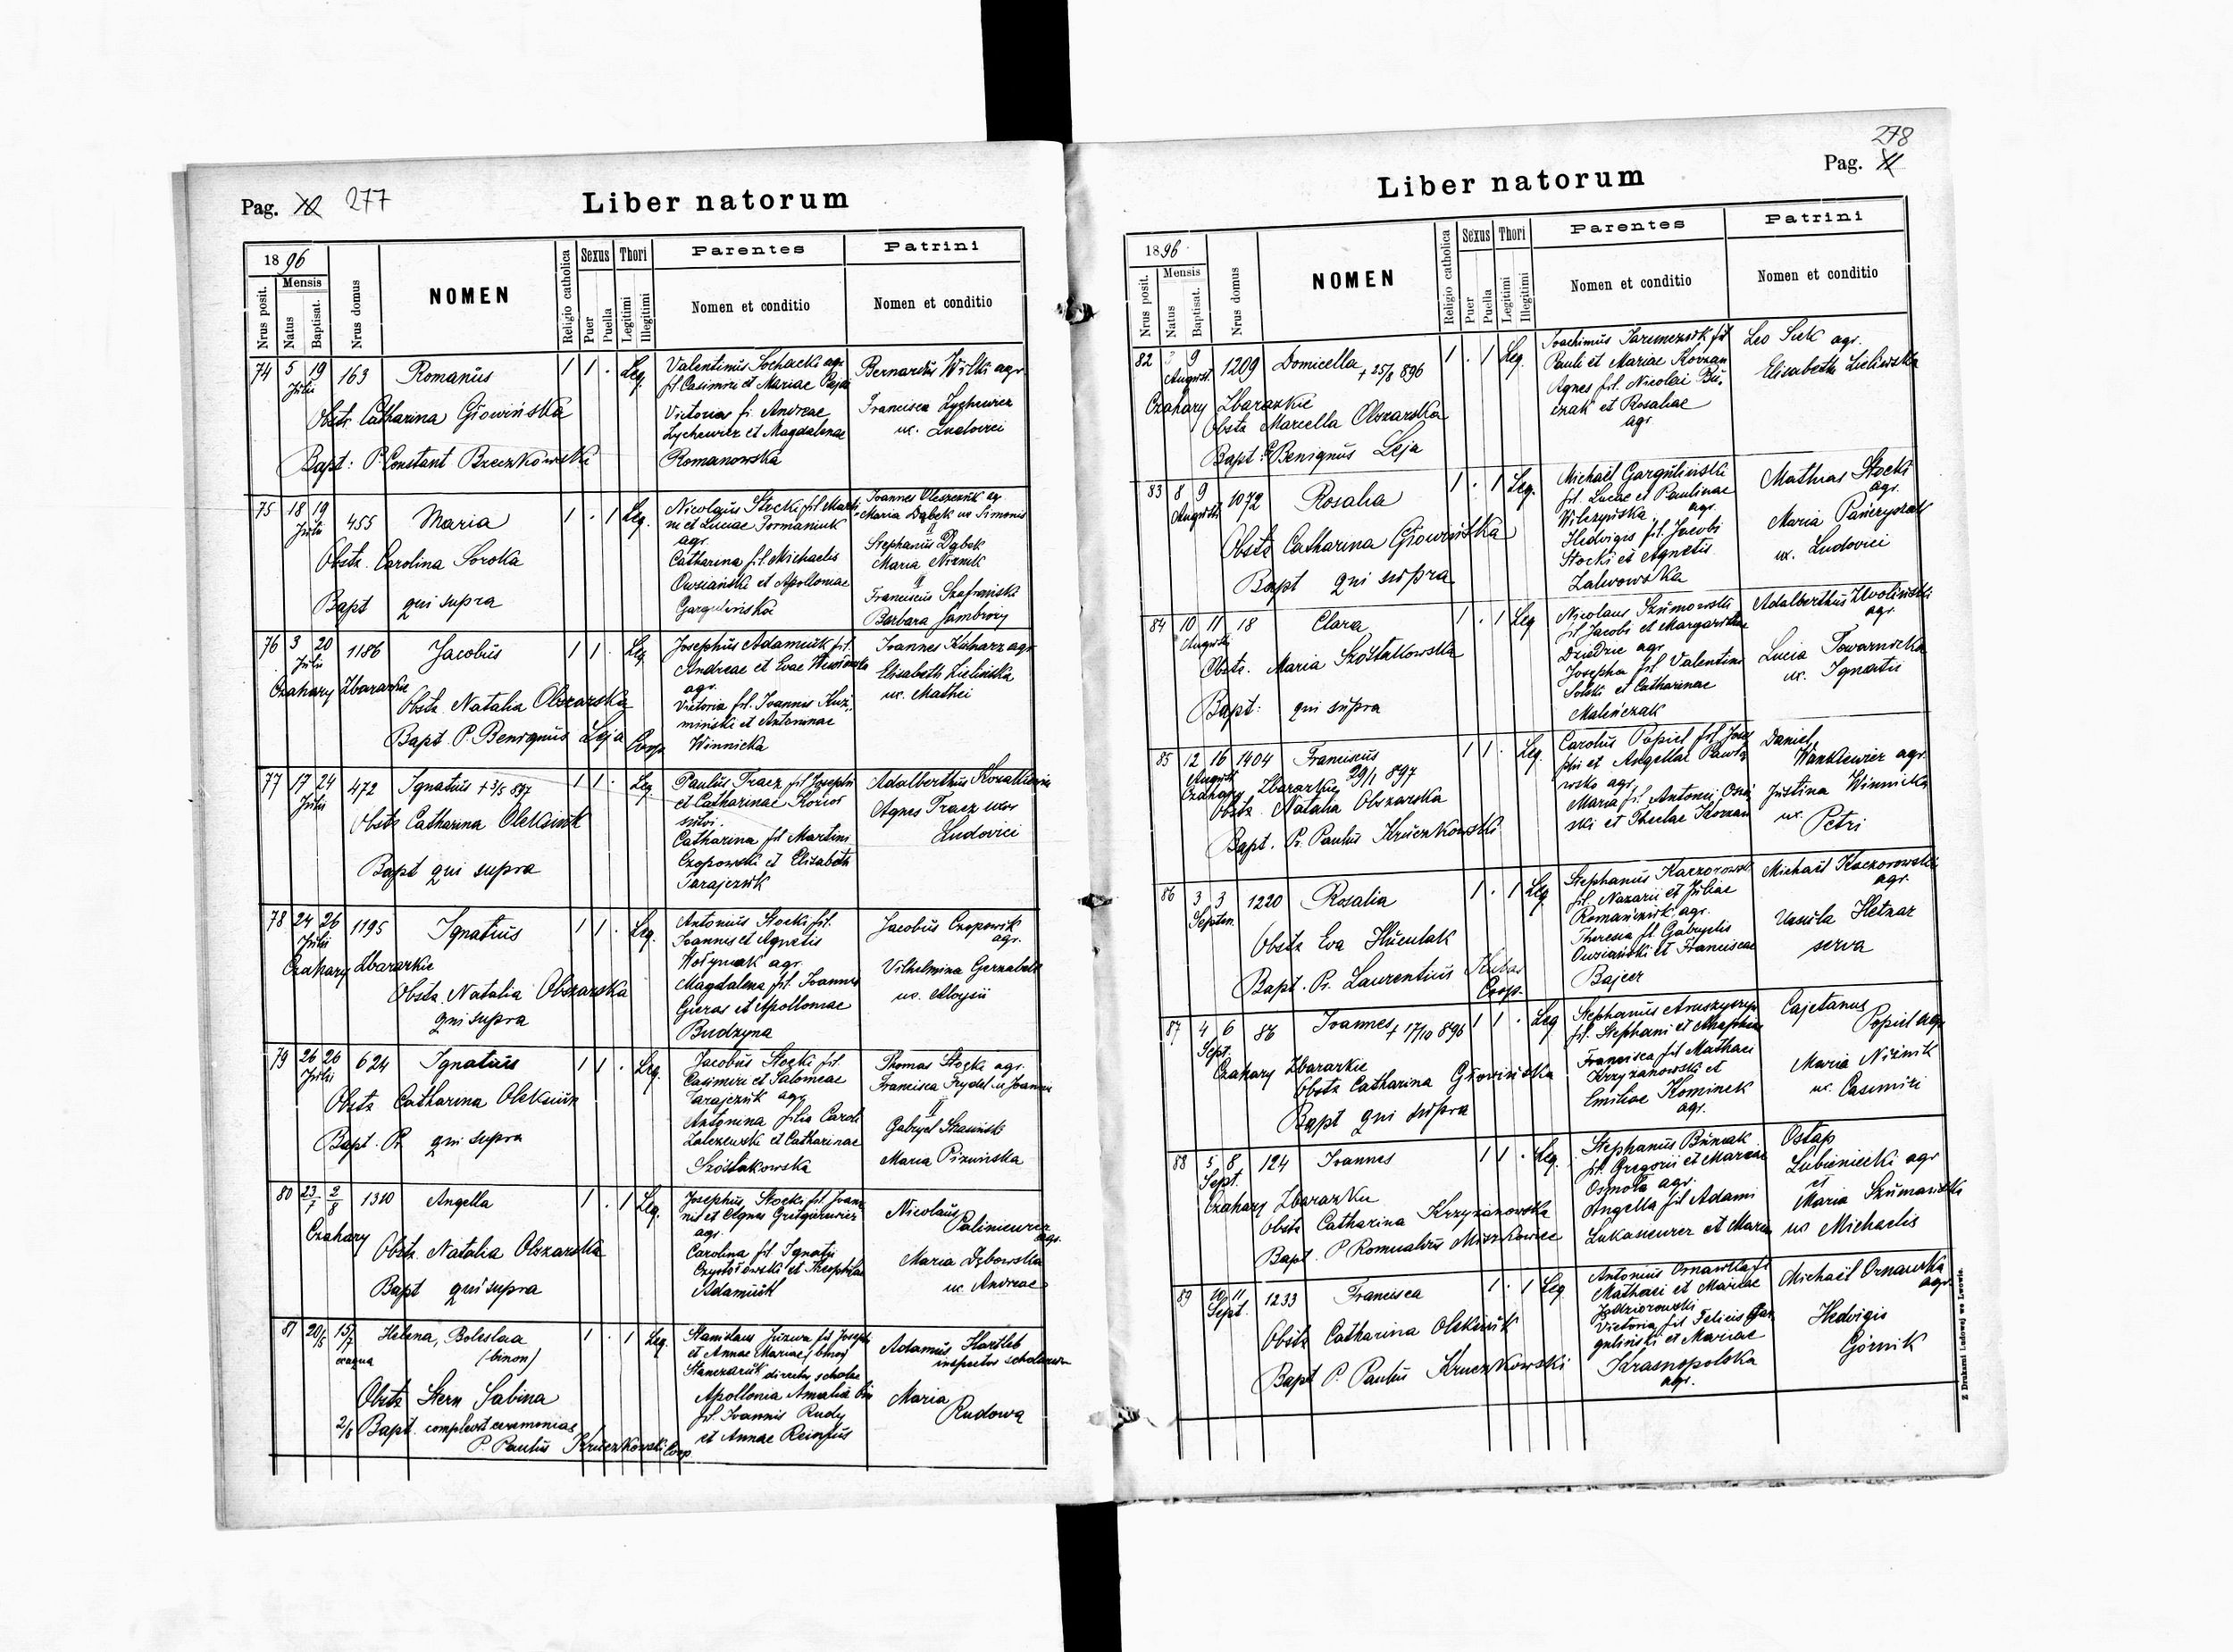 Pag. 277
Liber natorum
1896
Mensis
Nrus posit.
Natus
Baptisat.
Nrus domus
NOMEN
Religio catholica
Sexus
Puer
Puella
Thori
Legitimi
Illegitimi
Parentes
Nomen et conditio
Patrini
Nomen et conditio
74 5 19 163 Romanus 1 1 . Leg.
Julii
Obstr. Catharina Głowińska
Bapt: P. Constant
Valentinus Sochacki agr.
fil. Casimiri et Mariae
Victoria fi. Andreae
Lychewicz et Magdalenae
Romanowska
Bernardus Wilki agr.
Francisca Lychewicz
ux. Ludovici
75 18 19 455 Maria 1 . 1 Leg.
Julii
Obstr. Carolina Soroka
Bapt qui supra
Nicolaus Stocki fil. Marti-
ni et Luciae Formaniuk
agr.
Catharina fil. Michaelis
Owsiański et Apolloniae
Gargulińska
Joannes Oleszczuk
Maria Dąbek ux Simonis
Stephanus Dąbek
Maria Niźnik
Franciscus Szafrański
Barbara Jambroży
76 3 20 1186 Jacobus 1 1 . Leg.
Julii
Czahary Zbarazkie
Obstr. Natalia Olszarska
Bapt. P. Benignus Leja Coop.
Josephus Adamiuk fil.
Andreae et Evae
agr.
Victoria fil. Joannis Kuź-
miński et Antoninae
Winnicka
Joannes agr.
Elisabeth Zielińska
ux. Mathei
77 17 24 472 Ignatius + 3/5 897 1 1 . Leg
Julii
Obstr. Catharina Oleksiuk
Bapt qui supra
Paulus Tracz fil. Josephi
et Catharinae Kozioł
Catharina fil Martini
Czopowski et Elisabeth
Tarajczuk
Adalberthus
Agnes Tracz uxor
Ludovici
78 24 26 1195 Ignatius 1 1 . Leg.
Julii
Czahary Zbarazkie
Obstr. Natalia Olszarska
qui supra
Antonius Stocki fil.
Joannis et Agnetis
agr.
Magdalena fil. Joannis
Gieras et Apolloniae
Budzyna
Jacobus Czopowik
agr.
Vilhelmina
ux. Aloysii
79 26 26 624 Ignatius 1 1 . Leg.
Julii
Obstr. Catharina Oleksiuk
Bapt. Pr. qui supra
Jacobus Stocki fil.
Casimiri et Salomeae
Tarajczuk agr.
Antonina filia Caroli
Zalezewski et Catharinae
Szóstakowska
Thomas Stocki agr.
Francisca Frydel u Joannis
Gabryel
Maria
80 23/7 2/8 1310 Angella 1 . 1 Leg.
Czahary
Obstr. Natalia Olszarska
Bapt qui supra
Josephus Stocki fil. Joan-
nis et Agnes
agr.
Carolina fil. Ignatii
et Theophilae
Adamiuk
Nicolaus
Paliniewicz
agr.
Maria Dębowska
ux. Andreae
81 20/5 15/7 Helena, Boleslaa 1 . 1 Leg.
(binom)
Obstr. Stern Sabina
2/8 Bapt. complevit ceremonias
P. Paulus Kruczkowski Coop.
Stanislaus fil Josephi
et Annae Mariae (binom)
director scholae
Apollonia Amalia bin
fil. Joannis Rudy
et Annae
Adamus Hartleb
inspector scholarum
Maria
Rudowa
278
Pag.
Liber natorum
1896
Mensis
Nrus posit.
Natus
Baptisat.
Nrus domus
NOMEN
Religio catholica
Sexus
Puer
Puella
Thori
Legitimi
Illegitimi
Parentes
Nomen et conditio
Patrini
Nomen et conditio
82 3 9 1209 Domicella + 25/8 896 1 . 1 Leg.
August.
Czahary Zbarazkie
Obstr. Marcella Olszarska
Bapt. P. Benignus Leja
Joachimus Jaremczuk fil
Pauli et Mariae
Agnes fil. Nicolai Bu-
czak et Rosaliae
agr.
Leo Siek agr.
Elisabeth Zielińska
83 8 9 1072 Rosalia 1 . 1 Leg.
Augusti
Obstr. Catharina Głowińska
Bapt qui supra
Michaël Garguliński
fil. Lucae et Paulinae
Wilczyńska agr.
Hedvigis fil. Jacobi
Stocki et Agnetis
Zalwowska
Mathias Stocki
agr.
Maria
ux. Ludovici
84 10 11 18 Clara 1 . 1 Leg
Augusti
Obstr. Maria Szóstakowska
Bapt: qui supra
Nicolaus Szumowski
fil. Jacobi et Margarethae
agr.
Josepha fil. Valentini
Solski et Catharinae
Maleńczak
Adalberthus Zwoliński
agr.
Lucia Towarnicka
ux. Ignatii
85 12 16 1404 Franciscus 1 1 . Leg.
August 29/1 897
Czahary Zbarazkie
Obstr. Natalia Olszarska
Bapt. Pr. Paulus Kruczkowski
Carolus Popiel fil. Jose-
phi et Angellae
agr.
Maria fil. Antonii
et Theclae
Daniel
agr.
Justina Winnicka
ux. Petri
86 3 3 1220 Rosalia 1 . 1 Leg
Septem.
Obstr. Eva Huculak
Bapt. Pr. Laurentius Kubas
Coop.
Stephanus Kaczorowski
fil. Nazarii et Juliae
Romańczuk agr.
Theresia fil. Gabryelis
Owsiański et Franciscae
Bajcer
Michaël Kaczorowski
agr.
Ursula Hetnar
serva
87 4 6 86 Joannes + 17/10 896 1 1 . Leg
Sept.
Czahary Zbarazkie
Obstr. Catharina Głowińska
Bapt qui supra
Stephanus
fil. Stephani et
Francisca fil Mathaei
Krzyżanowski et
Emiliae Kominek
agr.
Cajetanus
Popiel agr.
Maria Niźnik
ux. Casimiri
88 5 8 124 Joannes 1 1 . Leg.
Sept.
Czahary Zbarazkie
Obstr. Catharina Krzyżanowska
Bapt. P Romualdus
Stephanus Buniak
fil. Gregorii et Mariae
Osmoła agr.
Angella fil Adami
Lukasiewicz et Mariae
Ostap
Lubieniecki agr
et
Maria
ux Michaelis
89 10 11 1233 Francisca 1 . 1 Leg
Sept.
Obstr. Catharina Oleksiuk
Bapt P. Paulus Kruczkowski
Antonius Ornawka fil
Mathaei et Mariae
Victoria fil Felicis Gar-
guliński et Mariae
Krasnopolska
agr.
Michaël Ornawka
agr.
Hedvigis
Górnik
Z Drukarni Ludowej we Lwowie.